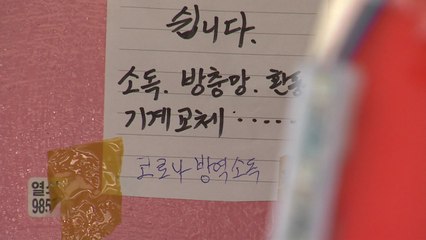 쉽니다.
소독. 방충망. 환풍
기계교체 ······
코로나 방역소독
열쇠
985